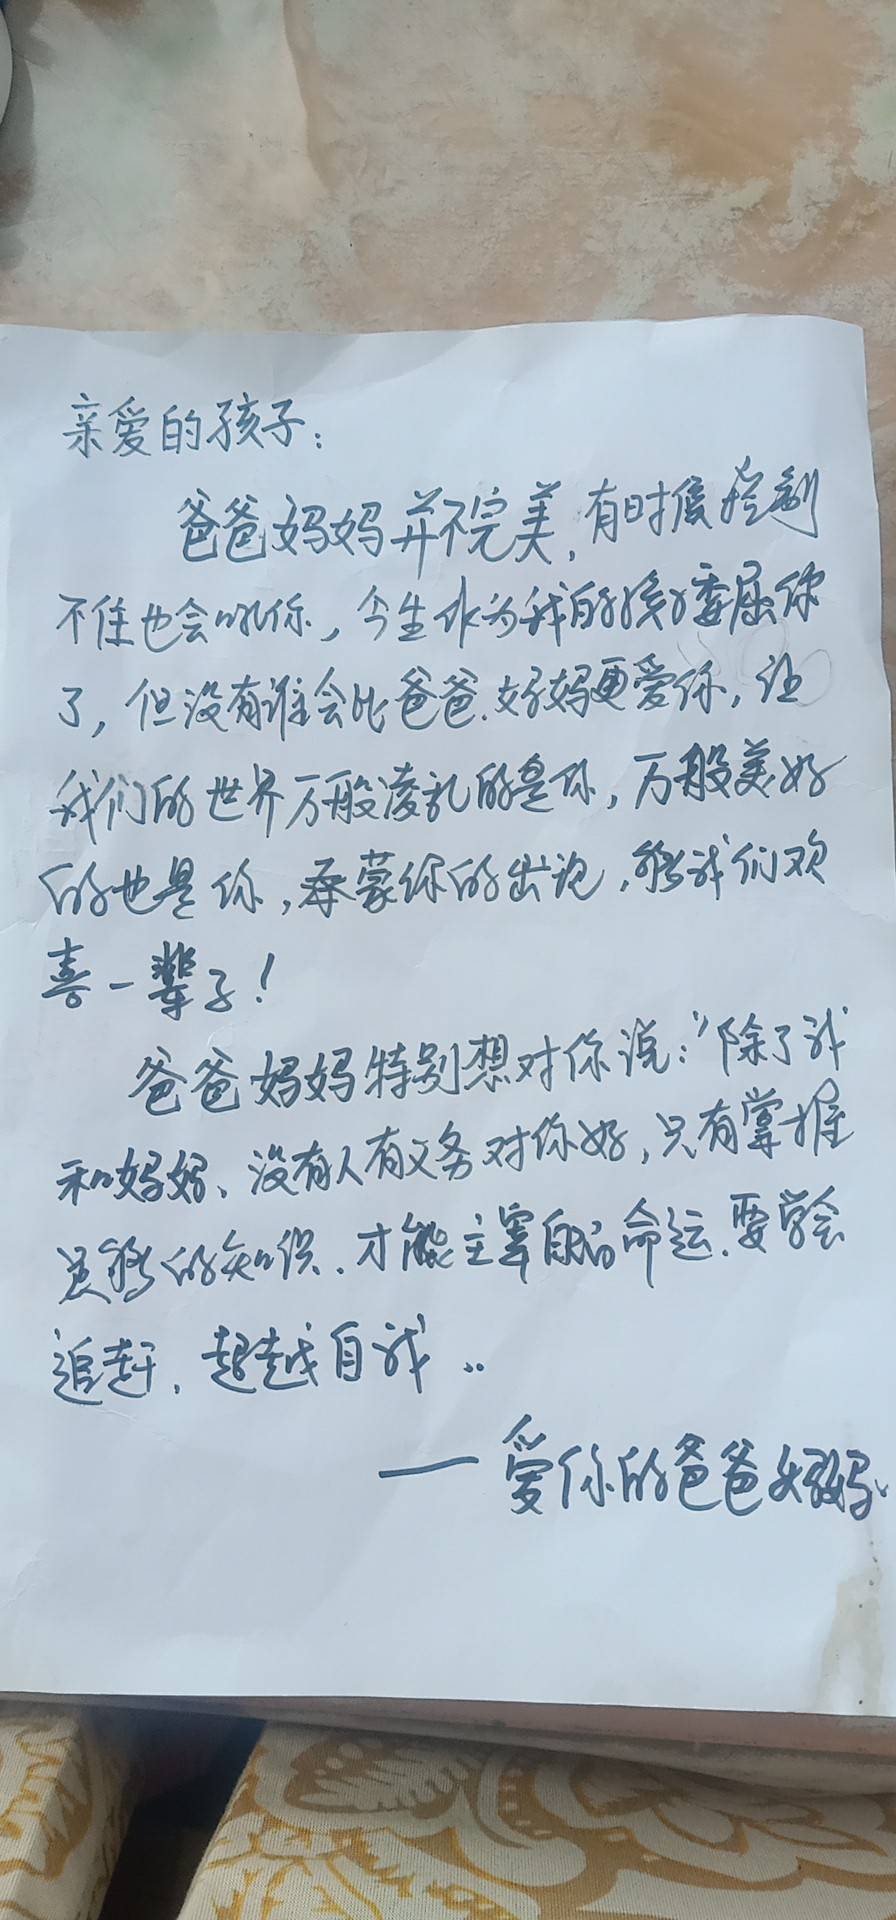 亲爱的孩子：
爸爸妈妈并不完美，有时候控制
不住也会吼你，今生作为我的孩子委屈你
了，但没有谁会比爸爸、妈妈更爱你，让
我们的世界万般凌乱的是你，万般美好
的也是你，承蒙你的出现，够我们欢
喜一辈子！
爸爸妈妈特别想对你说：“除了我
和妈妈、没有人有义务对你好，只有掌握
足够的知识．才能主宰自己的命运．要学会
追赶、超越自我．．
——爱你的爸爸妈妈